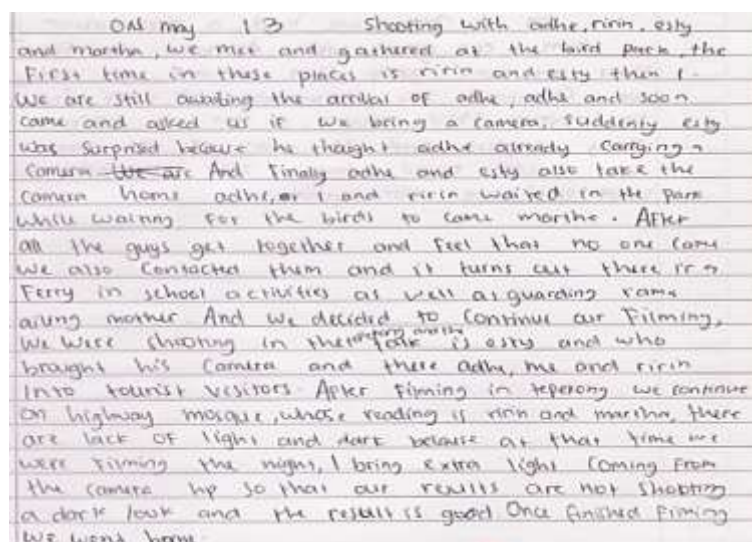 ON may 13 Shooting with adhe, ririn, esty
and martha, we met and gathered at the bird park, the
First time in these places is ririn and esty then I.
We are still awaiting the arrival of adhe, adhe and soon
came and asked us if we bring a camera, suddenly esty
was surprised because he thought adhe already carrying a
camera We are And Finally adhe and esty also take the
camera home adhe, I and ririn waited in the park
while waiting for the birds to come martha. After
all the guys get together and feel that no one came
we also contacted them and it turns out there
Ferry in school activities as well as guarding rama
ailing mother And we decided to continue our Filming,
We were shooting in the is esty and who
brought his camera and there adhe, me and ririn
Into tourist visitors. After Firming in teperong we continue
on highway mosque, whose reading is ririn and martha, there
are lack of light and dark because at that time we
were Filming the night, I bring extra light coming From
the camera hp so that our results are not shooting
a dark look and the result is good Once finished Firming
we went home.